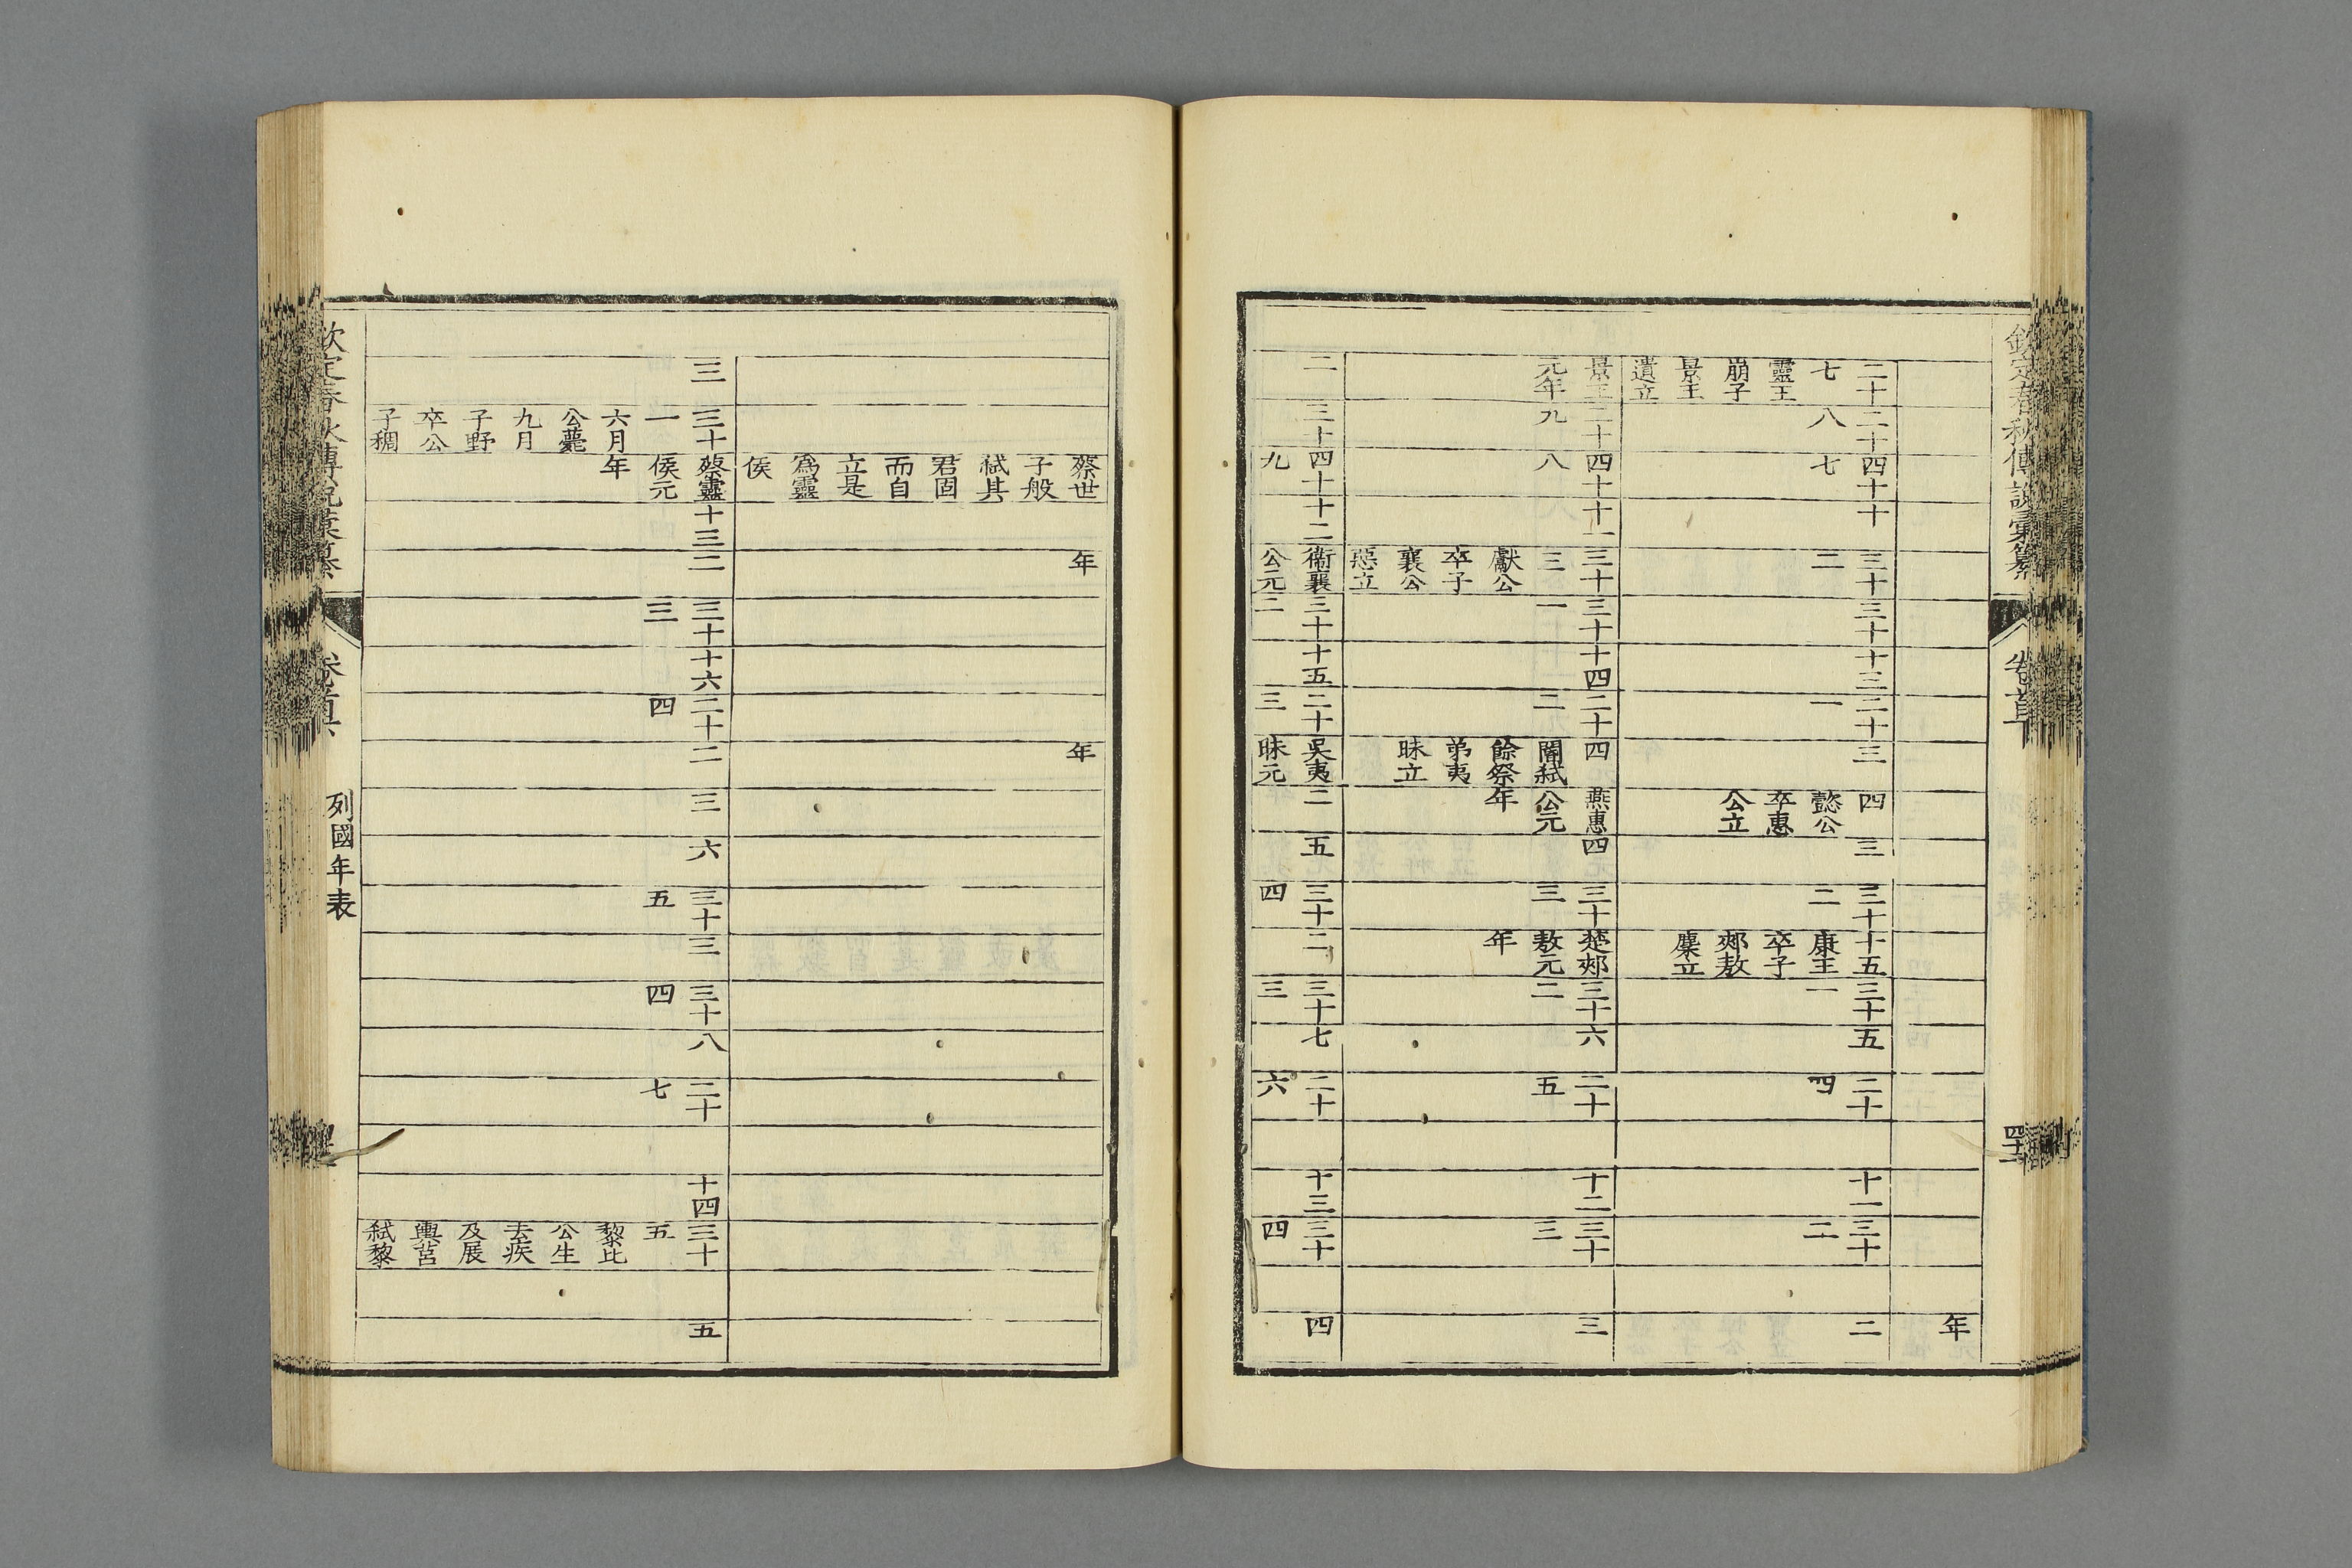 欽定春秋傳說彙纂 卷首下
年
二十 二十 四十 十 三十 三十 十三 二十 三 四 三 三十 十五 三十 五 二十 十一 三十 二
七 八 七 二 一 懿公 二 康王 一 四 二
靈王 卒惠 卒子
崩子 公立 郟敖
景王 麇立
遺立
景王 二十 四十 十一 三十 三十 十四 二十 四 燕惠 四 三十 楚郟 三十 六 二十 十二 三十 三
元年 九 八 三 一 二 閽弑 公元 三 敖元 二 五 三
獻公 餘祭 年 年
卒子 弟夷
襄公 昧立
惡立
二 三十 四十 十二 衞襄 三十 十五 二十 吳夷 二 五 三十 二 三十 七 二十 十三 三十 四
九 公元 二 三 昧元 四 三 六 四
蔡世 年 年
子般
弑其
君固
而自
立是
爲靈
侯
三 三十 蔡靈 十三 二 三十 十六 二十 二 三 六 三十 三 三十 八 二十 十四 三十 五
一 侯元 三 四 五 四 七 五
六月 年 黎比
公薨 公生
九月 去疾
子野 及展
卒公 輿莒
子稠 弑黎
欽定春秋傳說彙纂 卷首下 列國年表